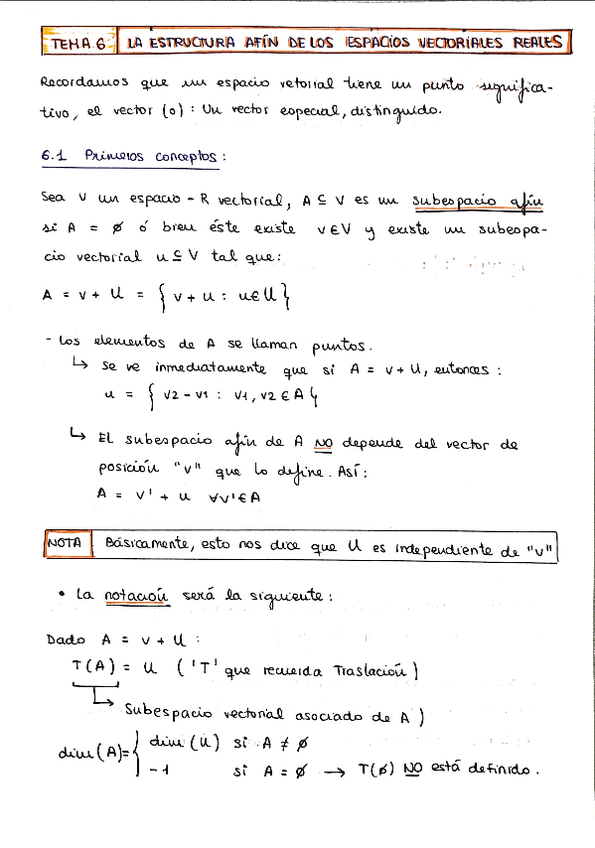 TEMA 6 LA ESTRUCTURA AFÍN DE LOS ESPACIOS VECTORIALES REALES
Recordamos que un espacio vetorial tiene un punto significa-
tivo, el vector (0): Un vector especial, distinguido.
6.1 Primeros conceptos:
Sea V un espacio - R vectorial, A ⊆ V es un subespacio afín
si A = ∅ ó bien éste existe v∈V y existe un subespa-
cio vectorial u ⊆ V tal que:
A = v + U = { v + u : u∈U }
- Los elementos de A se llaman puntos.
↳ Se ve inmediatamente que si A = v + U, entonces:
u = { v2 - v1 : v1, v2 ∈ A }
↳ EL subespacio afín de A NO depende del vector de
posición "v" que lo define. Así:
A = v' + u ∀v'∈A
NOTA Básicamente, esto nos dice que U es independiente de "v"
• La notación será la siguiente:
Dado A = v + U :
T(A) = U ('T' que recuerda Traslación)
↳ Subespacio vectorial asociado de A)
dim(A)= { dim(U) si A ≠ ∅
-1 si A = ∅ → T(∅) NO está definido.